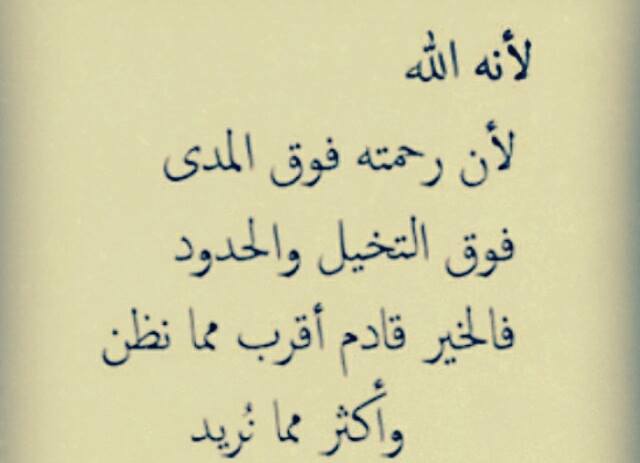 لأنه الله
لأن رحمته فوق المدى
فوق التخيل والحدود
فالخير قادم أقرب مما نظن
وأكثر مما نُريد